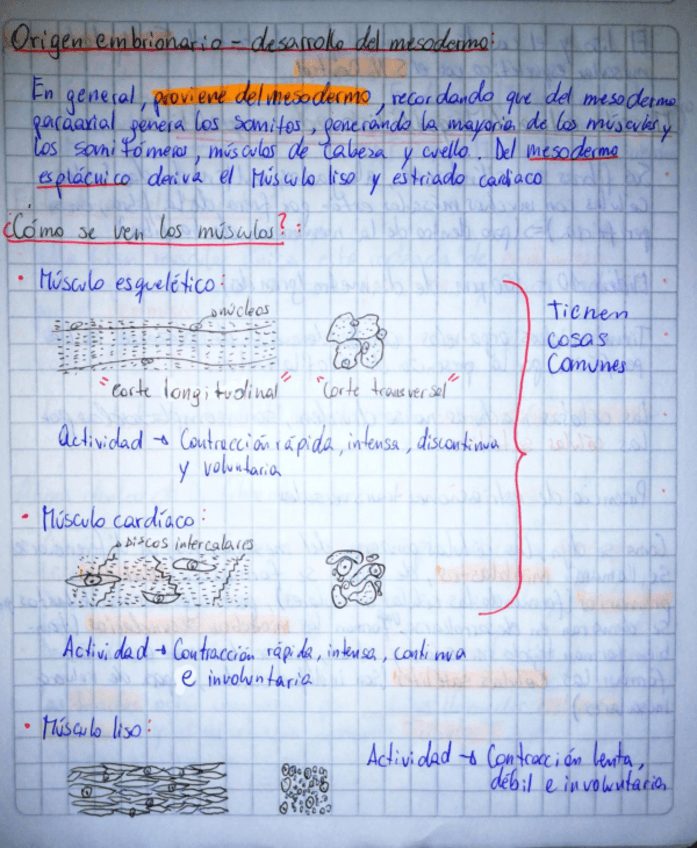 Origen embrionario - desarrollo del mesodermo:
En general, proviene del mesodermo, recordando que del mesodermo
paraaxial genera los somitos, generando la mayoria de los músculos y
los somitómeros, músculos de cabeza y cuello. Del mesodermo
esplácnico deriva el Músculo liso y estriado cardiaco
¿Cómo se ven los músculos?:
• Músculo esquelético:
núcleos
"corte longitudinal" "corte transversal"
Actividad → Contracción rápida, intensa, discontinua
y voluntaria
Tienen
cosas
comunes
• Músculo cardíaco:
Discos intercalares
Actividad → Contracción rápida, intensa, continua
e involuntaria
• Músculo liso:
Actividad → Contracción lenta,
débil e involuntaria